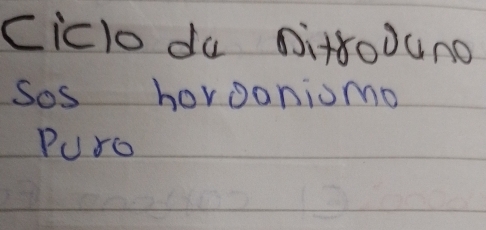 Ciclo da nitrogano
Sos horganismo
Puro